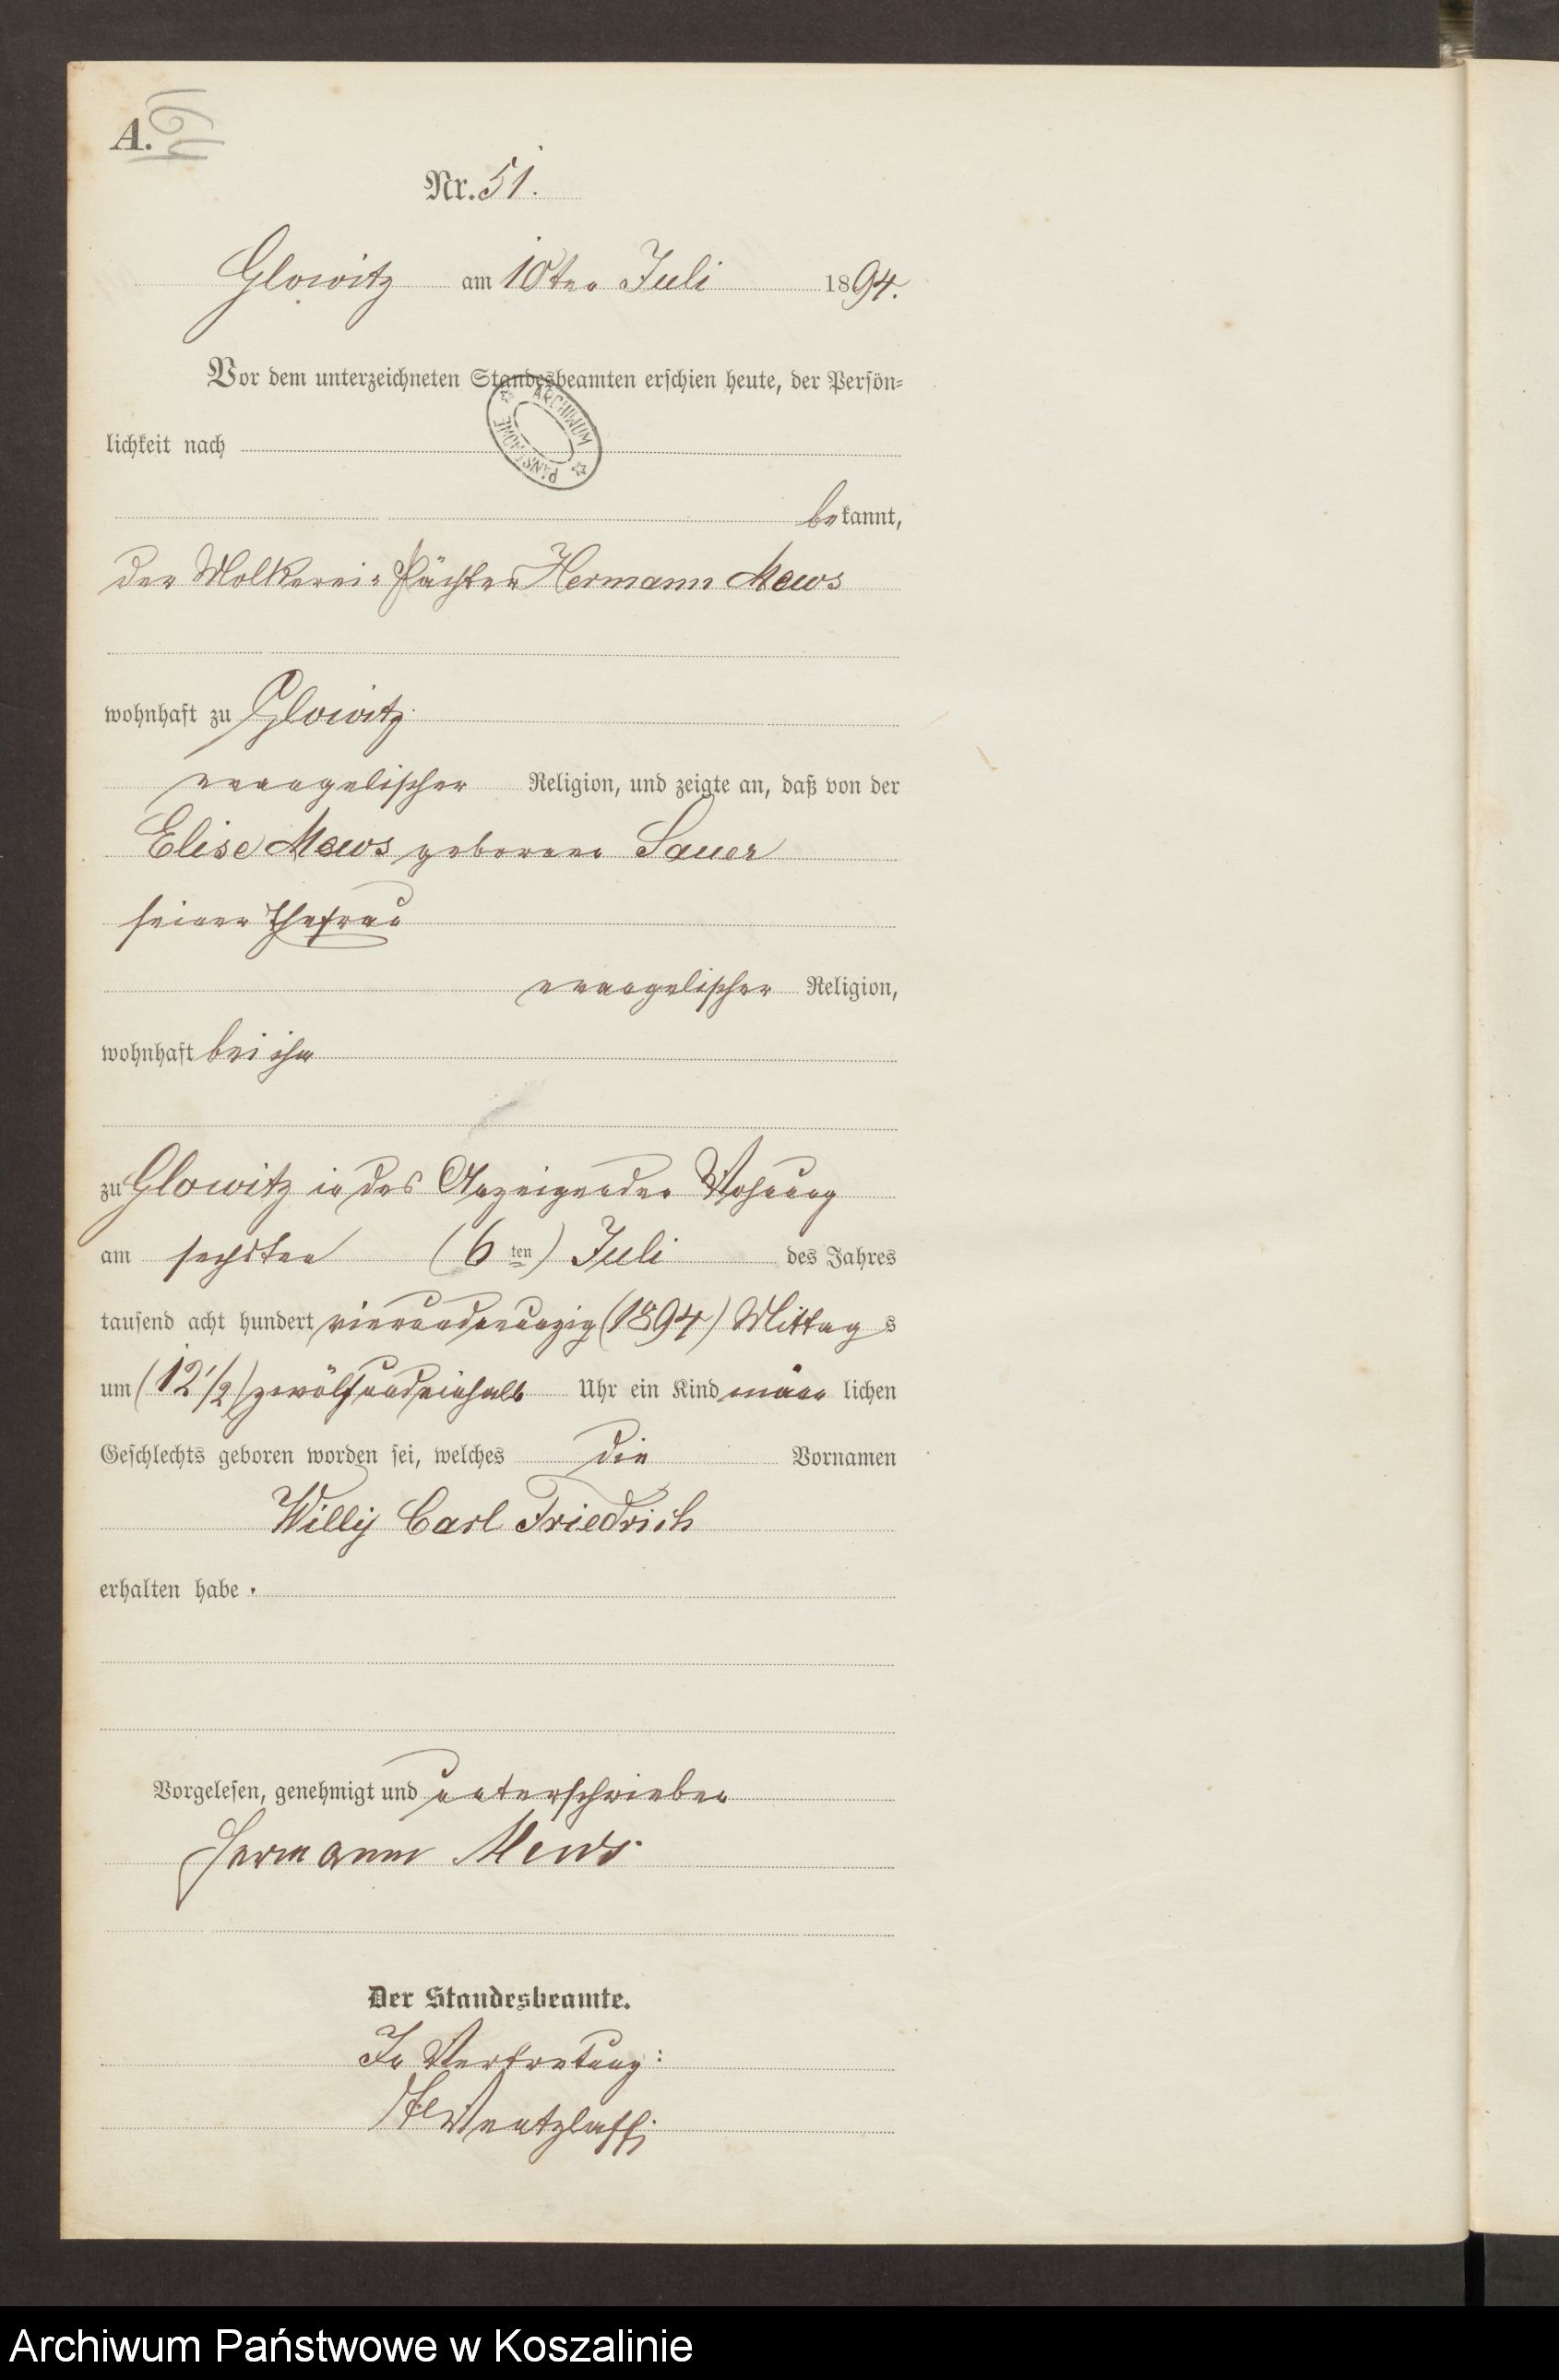 A.
Nr. 51.
Glowitz am 10ten Juli 1894.
Vor dem unterzeichneten Standesbeamten erschien heute, der Persön-
ARCHIWUM PAŃSTWOWE
lichkeit nach
bekannt,
der Molkerei-Pächter Hermann Mews
wohnhaft zu Glowitz
evangelischer Religion, und zeigte an, daß von der
Elise Mews geborene Sauer
seiner Ehefrau
evangelischer Religion,
wohnhaft bei ihm
zu Glowitz in des Anzeigenden Wohnung
am sechsten (6ten) Juli des Jahres
tausend acht hundert vierundneunzig (1894) Mittags
um (12 1/2) zwölfundeinhalb Uhr ein Kind männlichen
Geschlechts geboren worden sei, welches die Vornamen
Willy Carl Friedrich
erhalten habe.
Vorgelesen, genehmigt und unterschrieben
Hermann Mews
Der Standesbeamte.
In Vertretung:
Wentzlaff.
Archiwum Państwowe w Koszalinie